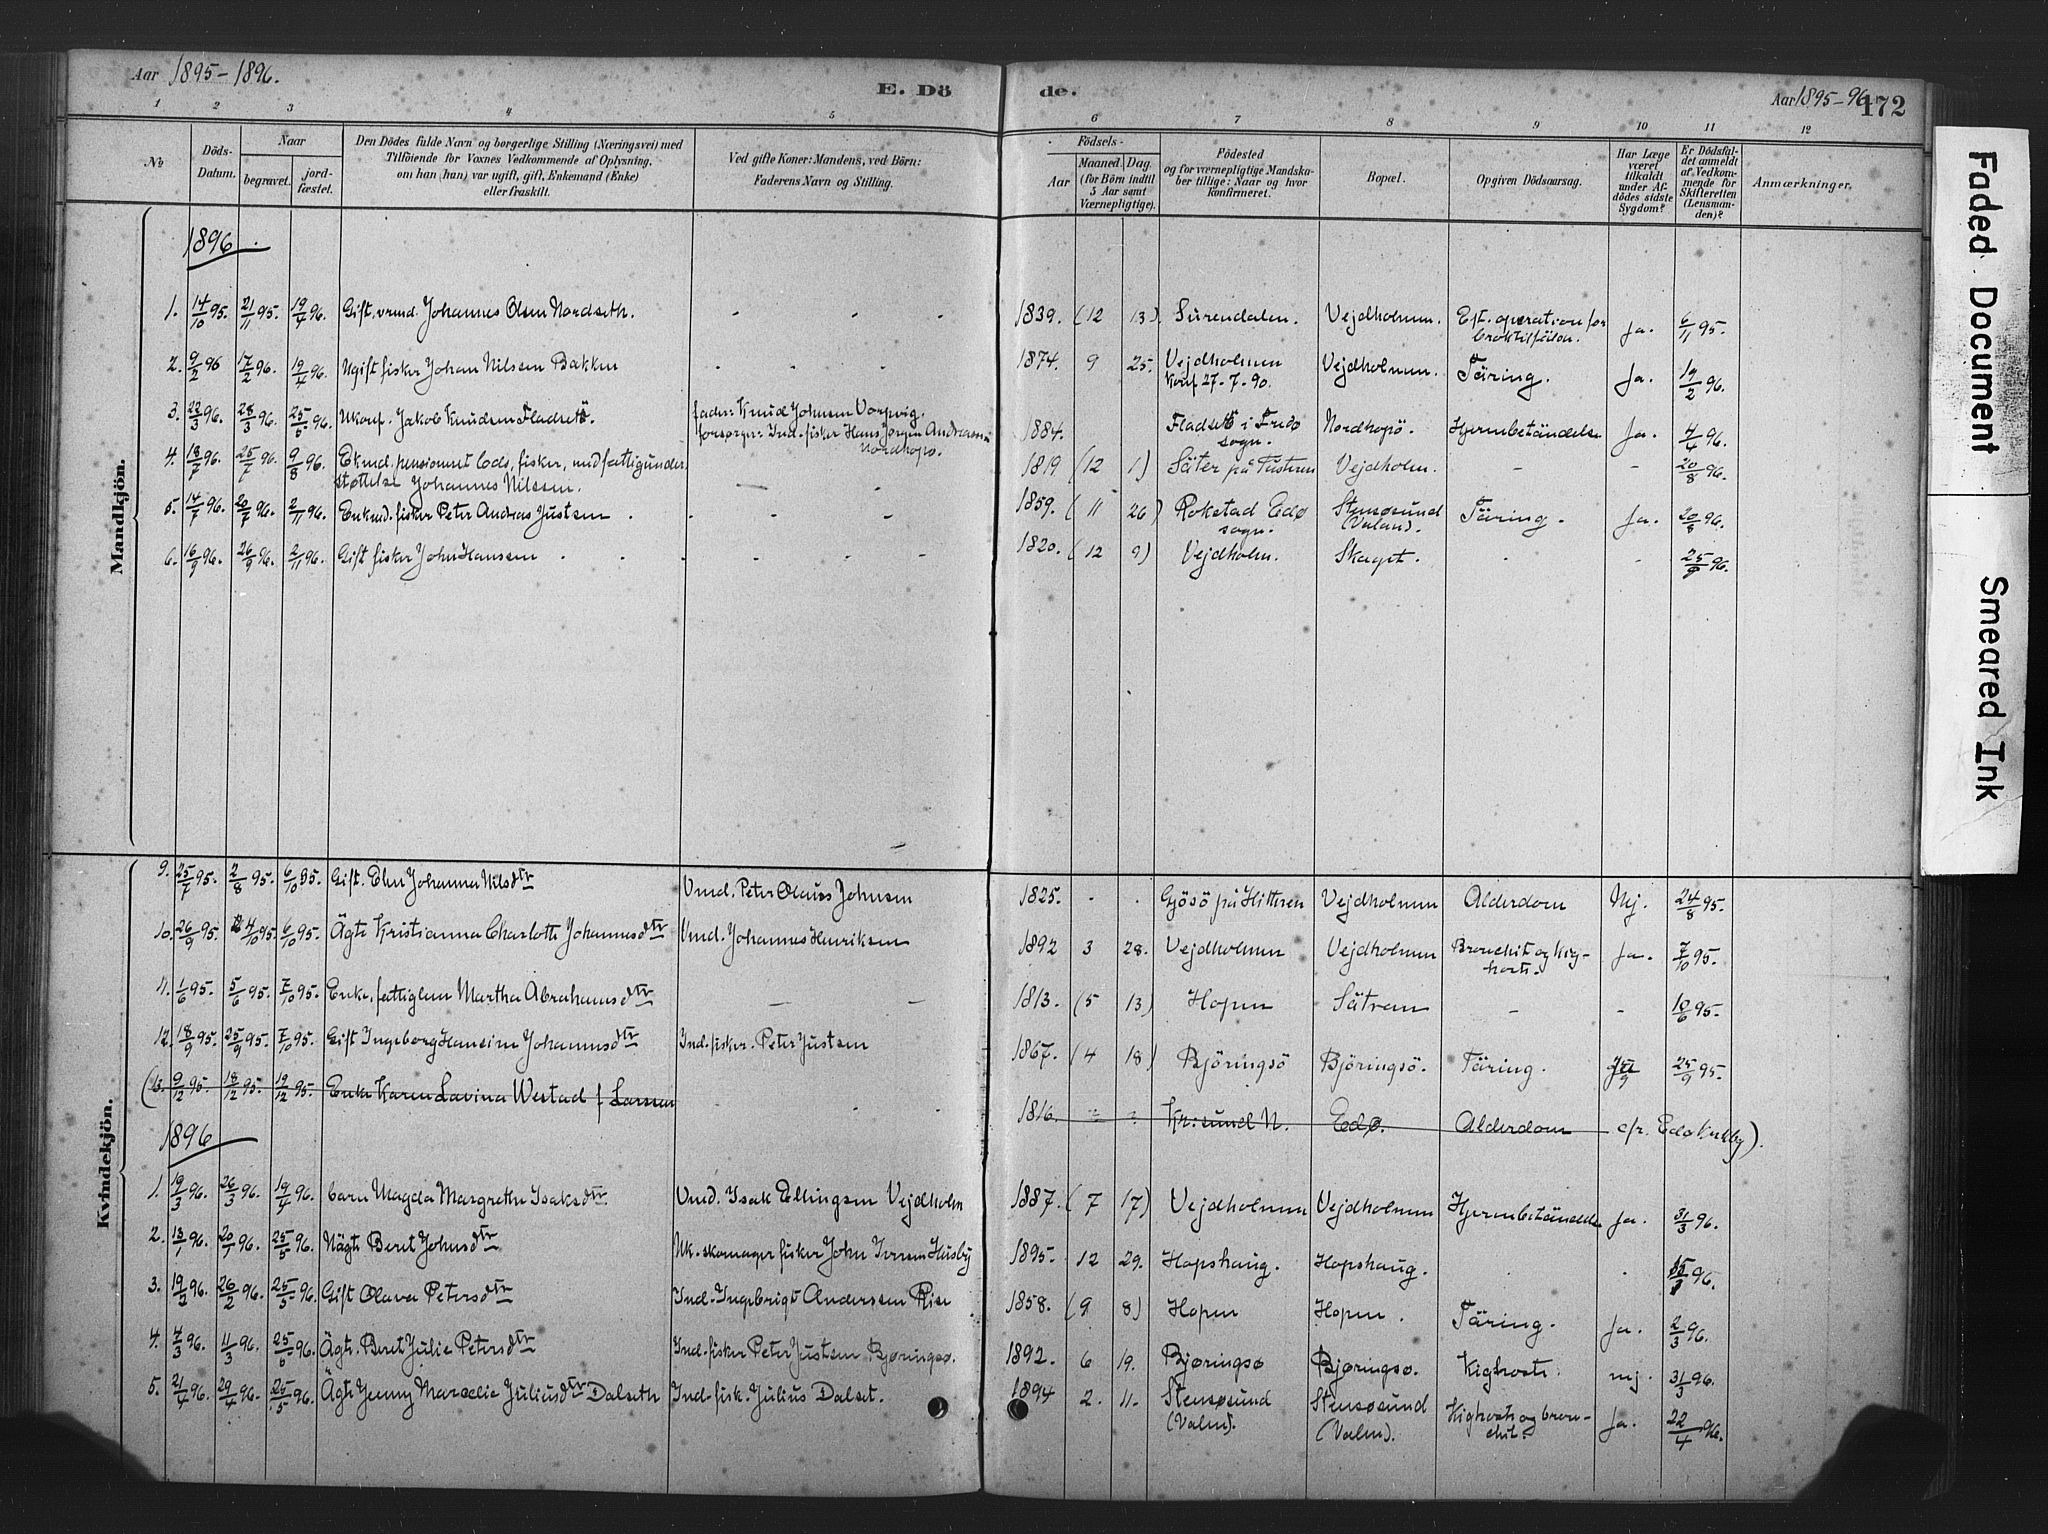 Aar 1895-1896.
E. Dö
de.
Aar 1895-96.
172
1 2 3 4 5 6 7 8 9 10 11 12
No
Döds-Datum.
Naar
begravet.
jord-fæstet.
Den Dödes fulde Navn og borgerlige Stilling (Næringsvei) med
Tilföiende for Voxnes Vedkommende af Oplysning,
om han (hun) var ugift, gift, Enkemand (Enke)
eller fraskilt.
Ved gifte Koner: Mandens, ved Börn:
Faderens Navn og Stilling.
Födsels-
Aar
Maaned. Dag.
(for Börn indtil
5 Aar samt
Værnepligtige).
Födested
og for værnepligtige Mandska-
ber tillige: Naar og hvor
konfirmeret.
Bopæl.
Opgiven Dödsaarsag.
Har Læge
været
tilkaldt
under Af-
dödes sidste
Sygdom?
Er Dödsfal-
det anmeldt
af Vedkom-
mende for
Skifteretten
(Lensman-
den)?
Anmærkninger.
Mandkjön.
1896.
1. 14/10 95. 21/11 95. 19/4 96. Gift, vmd. Johannes Olsen Nordseth. - - - 1839. (12 13) Surendalen. Vejdholmen. Eft. operation for Ja. 6/11 95.
broktilfälde.
2. 9/2 96 17/2 96. 19/4 96. Ugift fisker Johan Nilsen Bakken - - - 1874. 9 25. Vejdholmen Vejdholmen. Täring. Ja. 19/2 96.
konf 27-7-90.
3. 22/3 96. 28/3 96. 25/5 96. Ukonf. Jakob Knudsen Fladset fader: Knud Johnsen Vorpvig. 1884. Fladset i Fredø Nordhopö. Hjernebetändelse Ja. 4/4 96.
forsørger: Ind.-fisker Hans Jørgen Andreassen
Nordhopø.
sogn.
4. 18/7 96. 25/7 96. 9/8 96. Ekmd. pensioneret lods, fisker, med fattigunder- 1819 (12 1) Säter på Tusteren Vejdholm. - - 20/8 96.
støttelse Johannes Nilsen. - -
5. 14/7 96. 20/7 96. 2/11 96. Enkmd. fisker Peter Andreas Justsen . - - - 1859. (11 26) Rokstad Edø Stensøsund Täring. Ja. 20/8 96.
sogn. (Valan).
6. 16/9 96. 26/9 96. 2/11 96. Gift fisker John Hansen . . - - - 1820. (12 9) Vejdholm. Skaget. - - 25/9 96.
Kvindekjön.
9. 25/7 95. 2/8 95. 6/10 95. Gift. Elen Johanna Nilsdtr Vmd. Peter Olaus Johnsen 1825. - . Gjösö på Hitteren Vejdholmen Alderdom Nej. 24/8 95.
10. 26/9 95. 4/10 95. 6/10 95. Ägte Kristianna Charlotte Johannesdtr Vmd. Johannes Henriksen 1892 3 28. Vejdholmen Vejdholmen Bronchit og kig- Ja. 7/10 95.
hoste.
11. 1/6 95. 5/6 95. 7/10 95. Enke, fattiglem Martha Abrahamsdtr - - 1813. (5 13) Hopen Sätran - - 10/6 95.
12. 18/9 95. 25/9 95. 7/10 95. Gift Ingeborg Hansine Johannesdtr Ind.fisker. Peter Justsen 1867. (4 18) Björingsö Björingsö. Täring. Ja 25/9 95.
(13. 9/12 95. 18/12 95. 19/12 95. Enke Karen Lavina Westad f Larsen - - 1816. Kr:sund N. Edø. Alderdom cfr. Edø kirkeby).
1896
1. 19/3 96. 26/3 96. 19/4 96. barn Magda Margrethe Isaksdtr Vmd. Isak Ellingsen Vejdholm 1887. (7 17) Vejdholmen Vejdholmen Hjernebetändelse Ja. 31/3 96.
2. 13/1 96. 20/1 96. 25/5 96. Uägte Beret Johnsdtr Uk. skomager fisker John Iversen Husby 1895. 12 29. Hopshaug. Hopshaug. . . 15/3 96.
3. 19/2 96. 26/2 96. 25/5 96. Gift Olava Petersdtr Ind. Ingebrigt Anderssen Rise 1858. (9 8) Hopen Hopen . Täring. Ja. 2/3 96.
4. 4/3 96. 11/3 96. 25/5 96. Ägte Beret Julie Petersdtr Ind.fisker Peter Justsen Bjøringsø. 1892. 6 19. Bjøringsø Bjøringsø. Kighoste. nej. 31/3 96.
5. 21/4 96. 29/4 96. 25/5 96. Ägte Jenny Marselie Juliusdtr Dalseth Ind-fisk. Julius Dalset. 1894 2. 11. Stensøsund Stensøsund Kighoste og bron- Ja. 22/4 96.
(Valen). (Valen). chit.
Faded Document
Smeared Ink